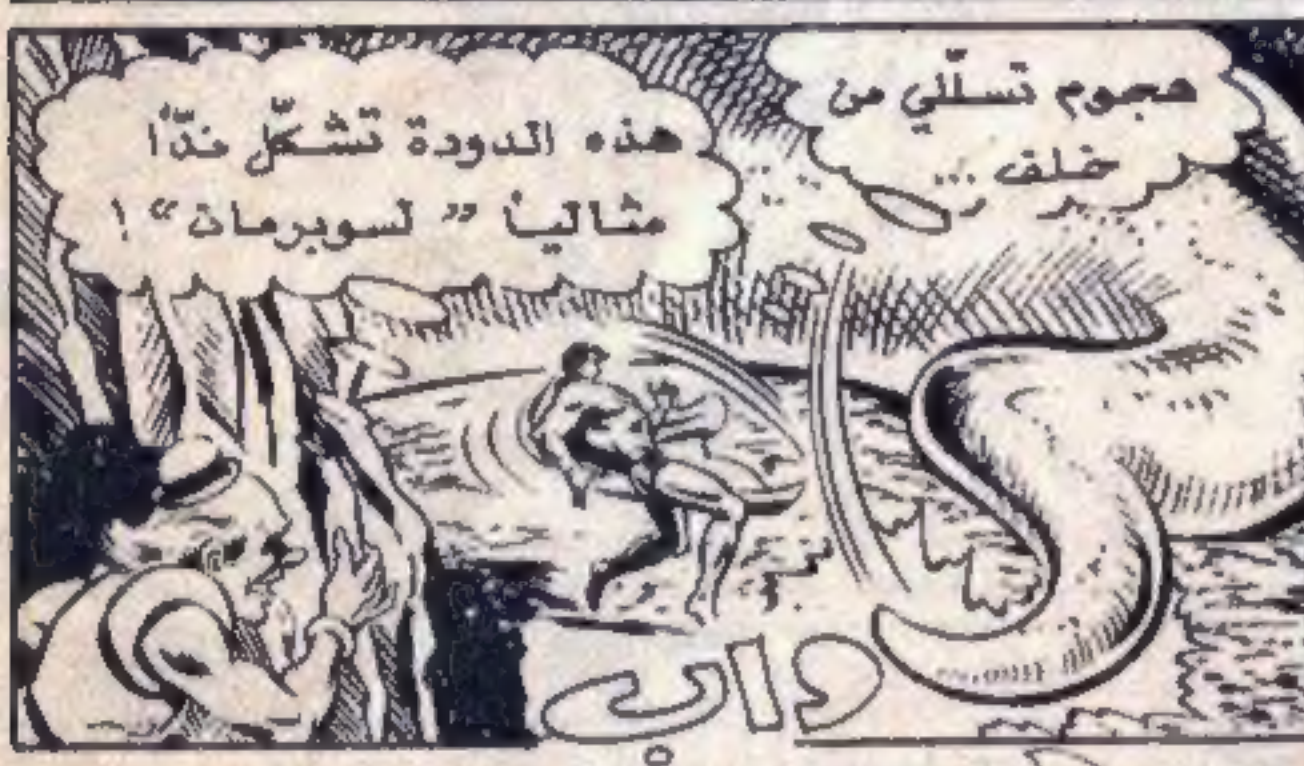 هجوم تسلّلي من
خلف ...
هذه الدودة تشكّل ندّاً
مثالياً " لسوبرمان " !
واب